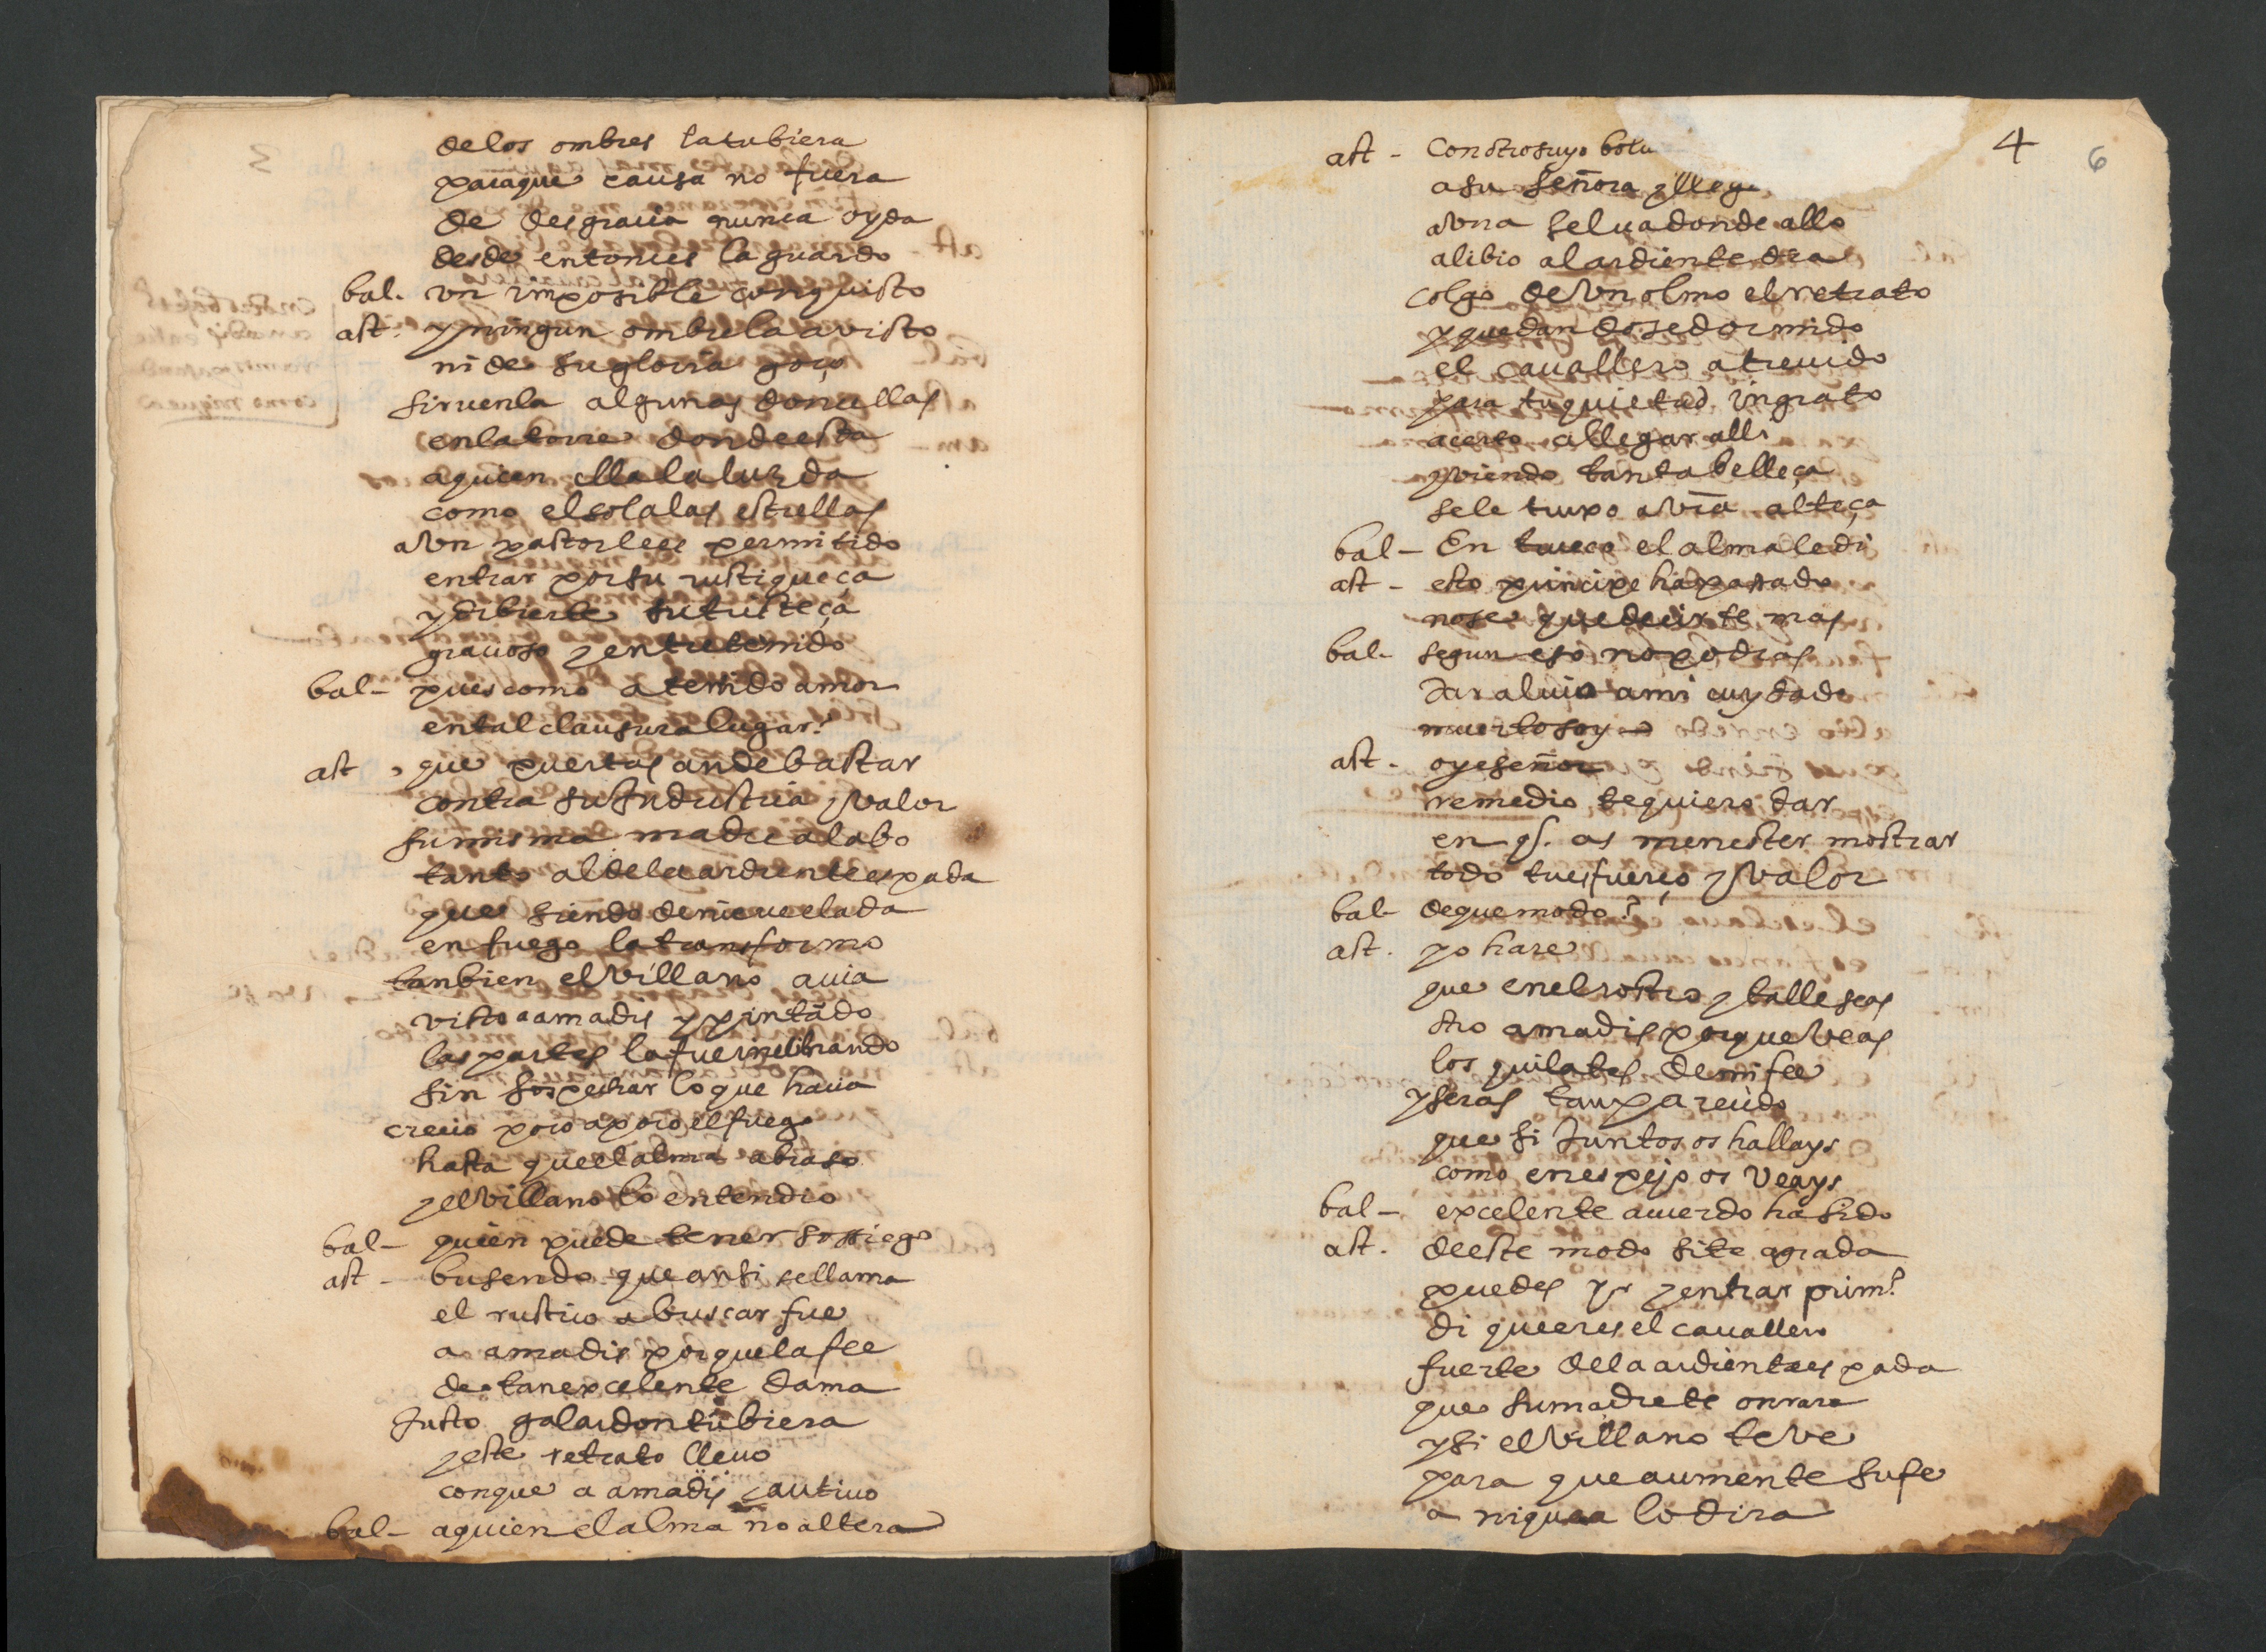 de los ombres la tubiera
para que causa no fuera
de desgracia nunca oyda
desde entonces la guardo
bal. vn imposible conquisto
ast. y ningun ombre la a visto
ni de su gloria goço
siruenla algunas doncellas
en la torre donde esta
a quien ella la luz da
como el sol a las estrellas
a vn pastor le es permitido
entrar por su rustiqueça
y dibierte su tristeça
gracioso y entretenido
bal - pues como a tenido amor
en tal clausura lugar?
ast - que puertas an de bastar
contra su Industria y valor
su misma madre alabo
tanto al de la ardiente espada
que siendo de nieue elada
en fuego la transformo
tanbien el villano auia
visto a amadis y pintãdo
las partes la fue inclinando
sin sospechar lo que hacia
crecio poco a poco el fuego
hasta que el alma abraso
y el villano lo entendio
bal - quien puede tener sossiego
ast - busendo que ansi se llama
el rustico a buscar fue
a amadis porque la fee
de tan excelente dama
Justo galardon tubiera
y este retrato lleuo
con que a amadis cautiuo
bal - a quien el alma no altera
4
6
ast - Con otro suyo bolu
a su señora y lleg
a vna selua donde allo
alibio al ardiente dia
colgo de vn olmo el retrato
y quedandose dormido
el cauallero atreuido
para tu quietud ingrato
acerto a llegar alli
y viendo tanta belleça
se le truxo a vrã alteça
bal - En trueco el alma le di
ast - esto principe ha pasado
no se que decirte mas
bal - segun eso no podras
dar aluio a mi cuydado
muerto soy
ast - oye señor
remedio te quiero dar
en q̃. as menester mostrar
todo tu esfuerço y valor
bal - de que modo?
ast. yo hare
que en el rostro y talle seas
otro amadis porque veas
los quilates de mi fee
y seras tan parecido
que si Juntos os hallays
como en espejo os veays
bal - excelente acuerdo ha sido
ast. de este modo si te agrada
puedes yr y entrar prim.º
di que eres el cauallero
fuerte de la ardiente espada
que su madre te onrara
y si el villano te ve
para que aumente su fe
a niquea lo dira